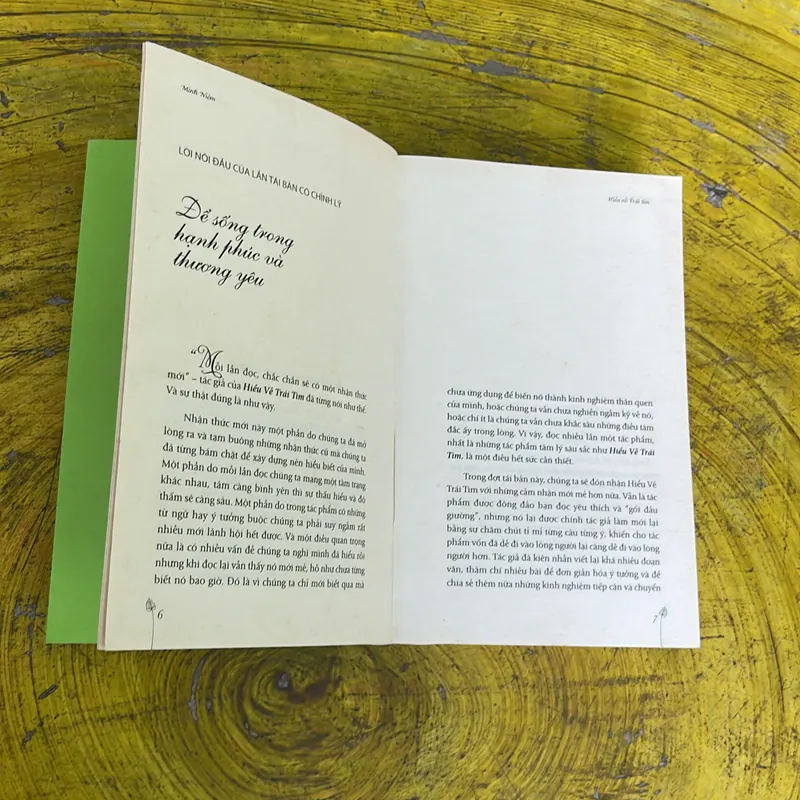 Minh Niệm
LỜI NÓI ĐẦU CỦA LẦN TÁI BẢN CÓ CHỈNH LÝ
Để sống trong
hạnh phúc và
thương yêu
“Mỗi lần đọc, chắc chắn sẽ có một nhận thức
mới” – tác giả của Hiểu Về Trái Tim đã từng nói như thế.
Và sự thật đúng là như vậy.
Nhận thức mới này một phần do chúng ta đã mở
lòng ra và tạm buông những nhận thức cũ mà chúng ta
đã từng bám chặt để xây dựng nên hiểu biết của mình.
Một phần do mỗi lần đọc chúng ta mang một tâm trạng
khác nhau, tâm càng bình yên thì sự thấu hiểu và độ
thấm sẽ càng sâu. Một phần do trong tác phẩm có những
từ ngữ hay ý tưởng buộc chúng ta phải suy ngẫm rất
nhiều mới lãnh hội hết được. Và một điều quan trọng
nữa là có nhiều vấn đề chúng ta nghĩ mình đã hiểu rồi
nhưng khi đọc lại vẫn thấy nó mới mẻ, hồ như chưa từng
biết nó bao giờ. Đó là vì chúng ta chỉ mới biết qua mà
6
Hiểu về Trái tim
chưa ứng dụng để biến nó thành kinh nghiệm thân quen
của mình, hoặc chúng ta vẫn chưa nghiền ngẫm kỹ về nó,
hoặc chí ít là chúng ta vẫn chưa khắc sâu những điều tâm
đắc ấy trong lòng. Vì vậy, đọc nhiều lần một tác phẩm,
nhất là những tác phẩm tâm lý sâu sắc như Hiểu Về Trái
Tim, là một điều hết sức cần thiết.
Trong đợt tái bản này, chúng ta sẽ đón nhận Hiểu Về
Trái Tim với những cảm nhận mới mẻ hơn nữa. Vẫn là tác
phẩm được đông đảo bạn đọc yêu thích và “gối đầu
giường”, nhưng nó lại được chính tác giả làm mới lại
bằng sự chăm chút tỉ mỉ từng câu từng ý, khiến cho tác
phẩm vốn đã dễ đi vào lòng người lại càng dễ đi vào lòng
người hơn. Tác giả đã kiên nhẫn viết lại khá nhiều đoạn
văn, thậm chí nhiều bài để đơn giản hóa ý tưởng và để
chia sẻ thêm nữa những kinh nghiệm tiếp cận và chuyển
7